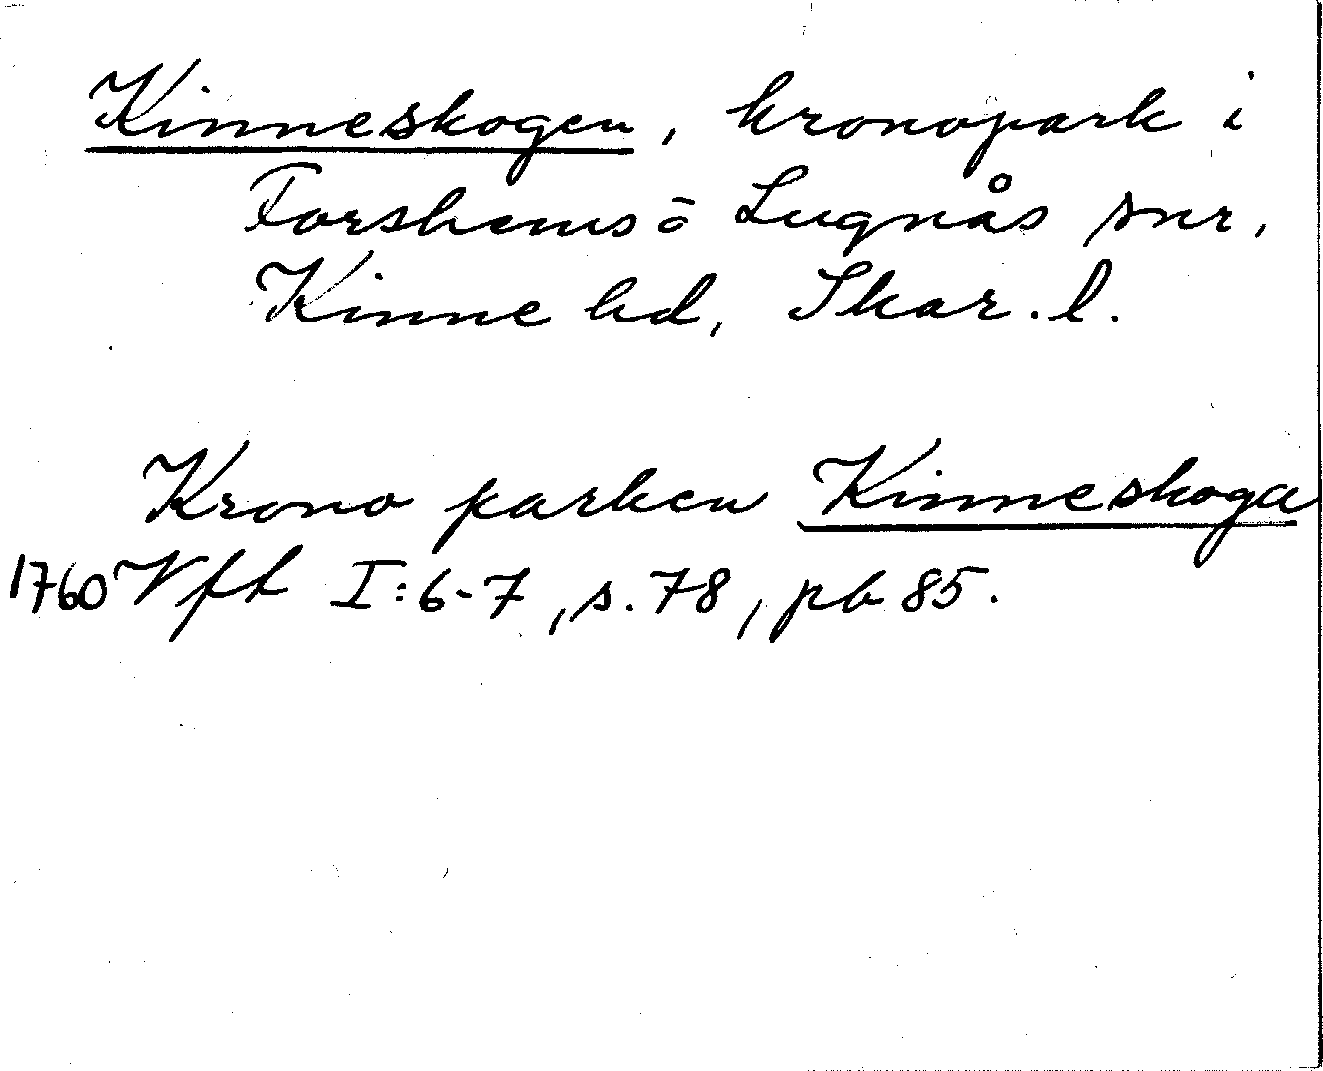 Kinneskogen, kronopark i
Forshems o Lugnås snr,
Kinne hd, Skar. l.
Krono parken Kinneskoga
1760 Vfl I:6-7, s. 78, pb 85.